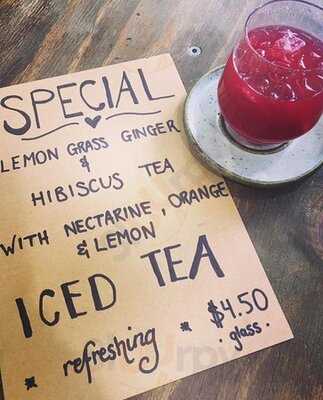 SPECIAL
LEMON GRASS GINGER
&
HIBISCUS TEA
WITH NECTARINE, ORANGE
& LEMON
ICED TEA
* refreshing * $4.50
glass.